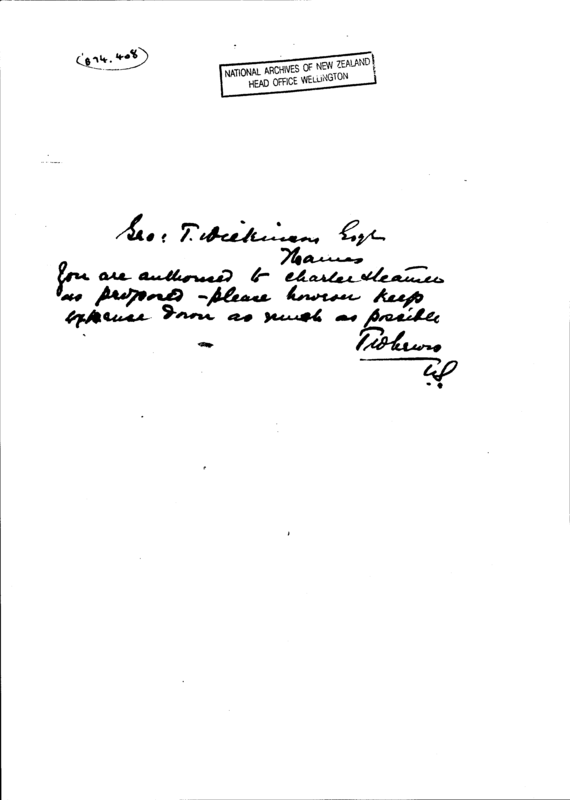 (874.408)
NATIONAL ARCHIVES OF NEW ZEALAND
HEAD OFFICE WELLINGTON
Geo: T. Wilkinson Esqr
Thames
You are authorised to charter steamer
as proposed - please however keep
expense down as much as possible